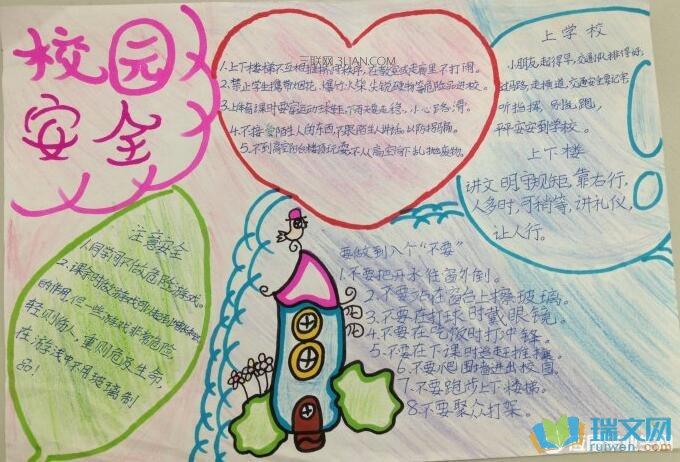 校园
安全
三联网 3LIAN.COM
1.上下楼梯不互相推挤,守秩序,在教室或走廊里不打闹。
2.禁止学生携带烟花、爆竹、火柴、尖锐硬物等危险品进校。
3.上体育课时要穿运动衣球鞋,下雨天要走稳,小心路滑。
4.不接受陌生人的东西,不跟陌生人讲话,以防拐骗。
5.不到高空阳台楼顶玩耍,不从高空向下乱抛废物。
上学校
小朋友,起得早,交通队,排得好,
过马路,走横道,交通安全要记牢
听指挥,别乱跑,
平平安安到学校。
上下楼
讲文明守规矩,靠右行,
人多时,可稍等,讲礼仪,
让人行。
注意安全
1.同学间不做危险游戏。
2.课余时做些游戏可以起到
的作用,但一些游戏非常危险,
轻则伤人,重则危及生命,
在游戏中不用玻璃制
品!
要做到八个“不要”
1.不要把开水往窗外倒。
2.不要站在窗台上擦玻璃。
3.不要在打球时戴眼镜。
4.不要在吃饭时打冲锋。
5.不要在下课时追赶推搡。
6.不要爬围墙进出校园。
7.不要跑步上下楼梯。
8.不要聚众打架。
瑞文网
ruiwen.com